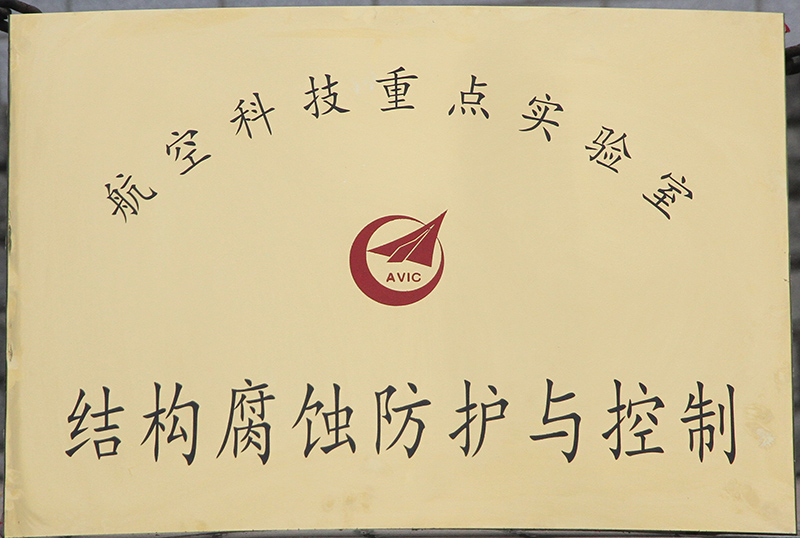 航空科技重点实验室
AVIC
结构腐蚀防护与控制